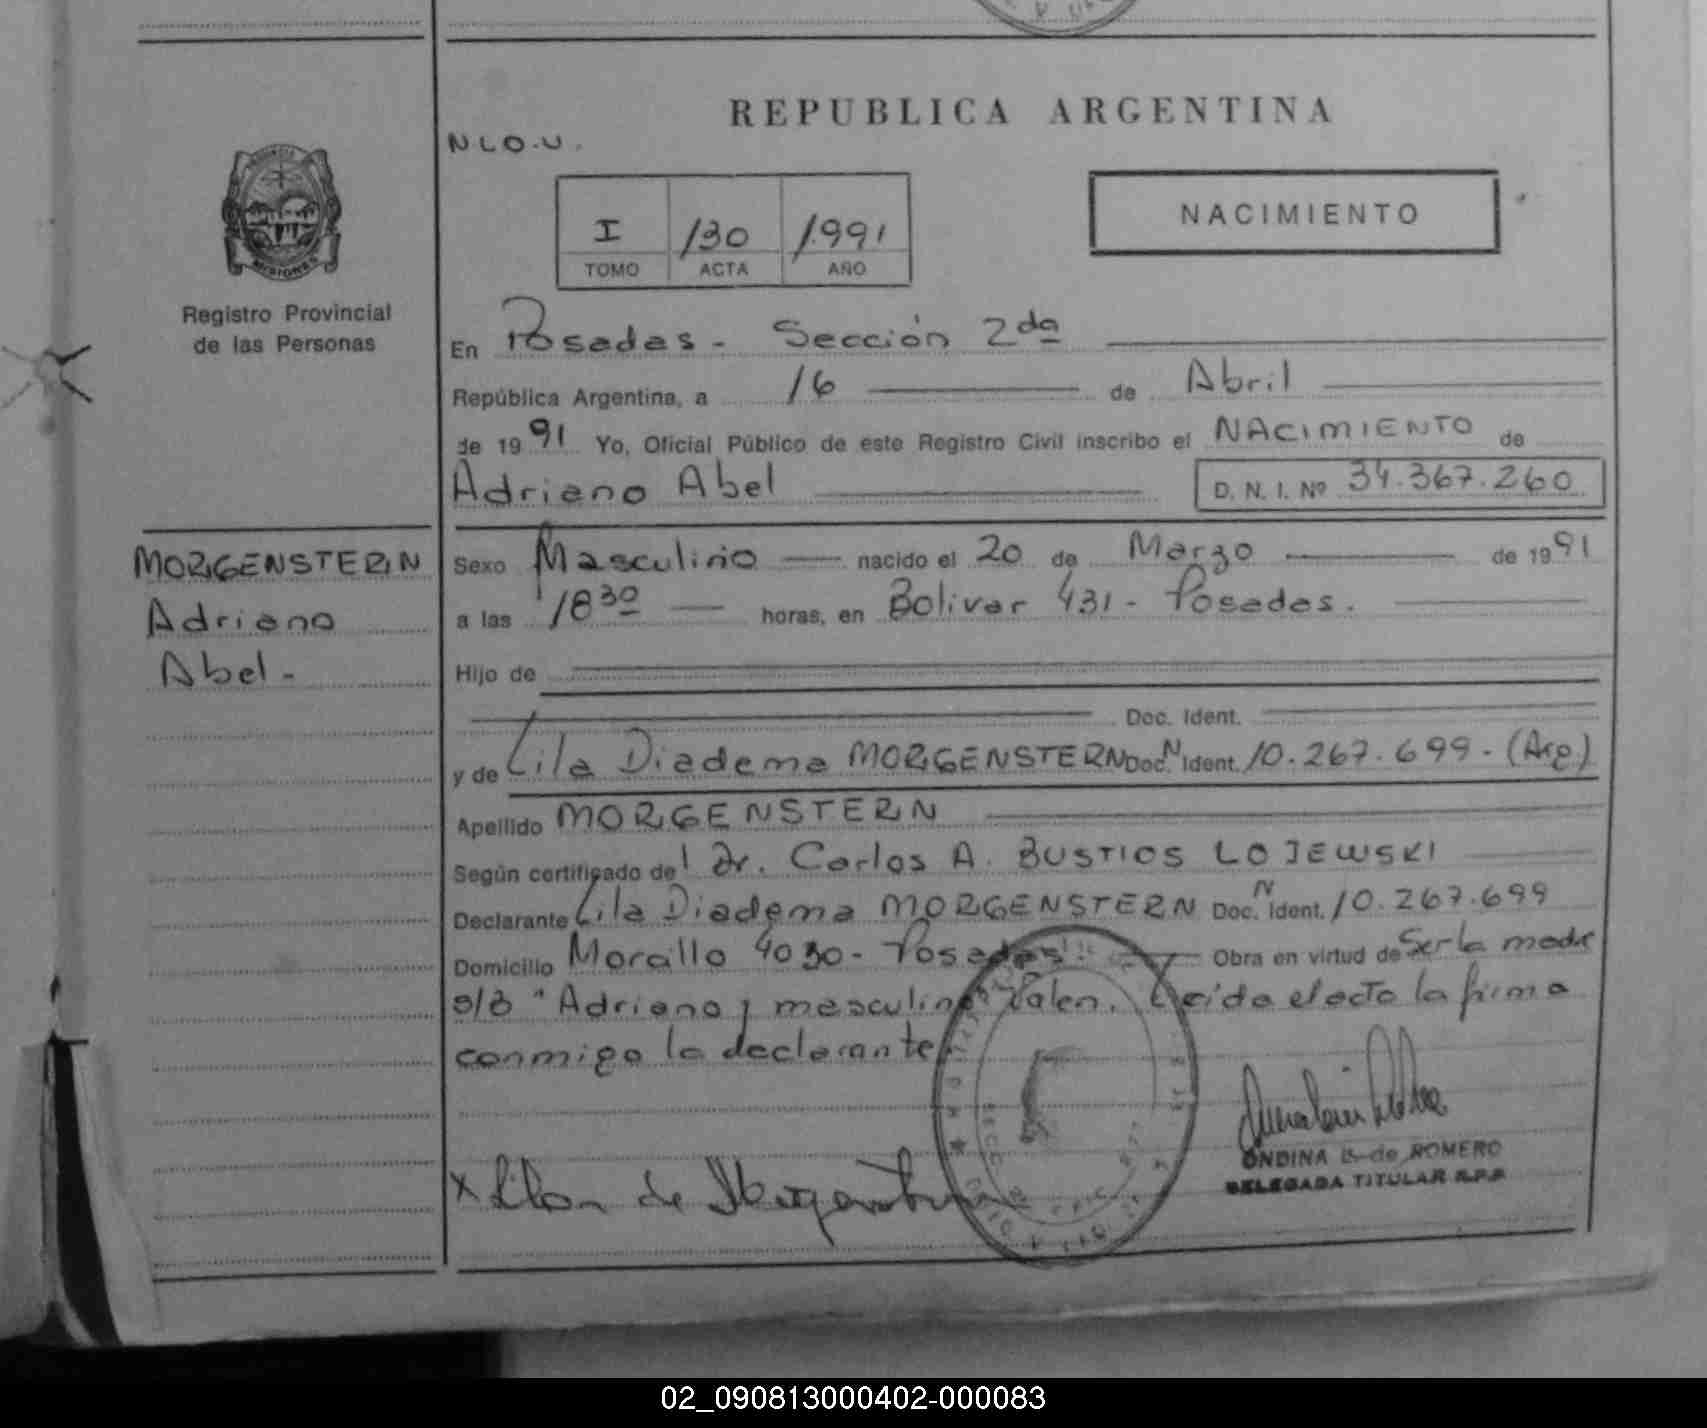 REPUBLICA ARGENTINA
N L O . U .
I /130 /1.991
TOMO ACTA AÑO
NACIMIENTO
MISIONES
Registro Provincial
de las Personas
En Posadas - Sección 2da
República Argentina, a 16 de Abril
de 1991 Yo, Oficial Público de este Registro Civil inscribo el NACIMIENTO de
Adriano Abel D. N. I. Nº 34.367.260
MORGENSTERN
Adriano
Abel -
Sexo Masculino nacido el 20 de Marzo de 1991
a las 18 30 horas, en Bolivar 431 - Posadas.
Hijo de
Doc. Ident.
y de Lila Diadema MORGENSTERN Doc. N Ident. 10.267.699 - (Arg.)
Apellido MORGENSTERN
Según certificado del Dr. Carlos A. BUSTIOS LOJEWSKI
Declarante Lila Diadema MORGENSTERN Doc. N Ident. 10.267.699
Domicilio Morcillo 4030 - Posadas. Obra en virtud de Ser la madre
s/b "Adriano y masculino" Valen. Leida el acta la firma
conmigo la declarante
x Lila de Morgenstern
ONDINA B. de ROMERO
DELEGADA TITULAR R.P.P.
02_090813000402-000083